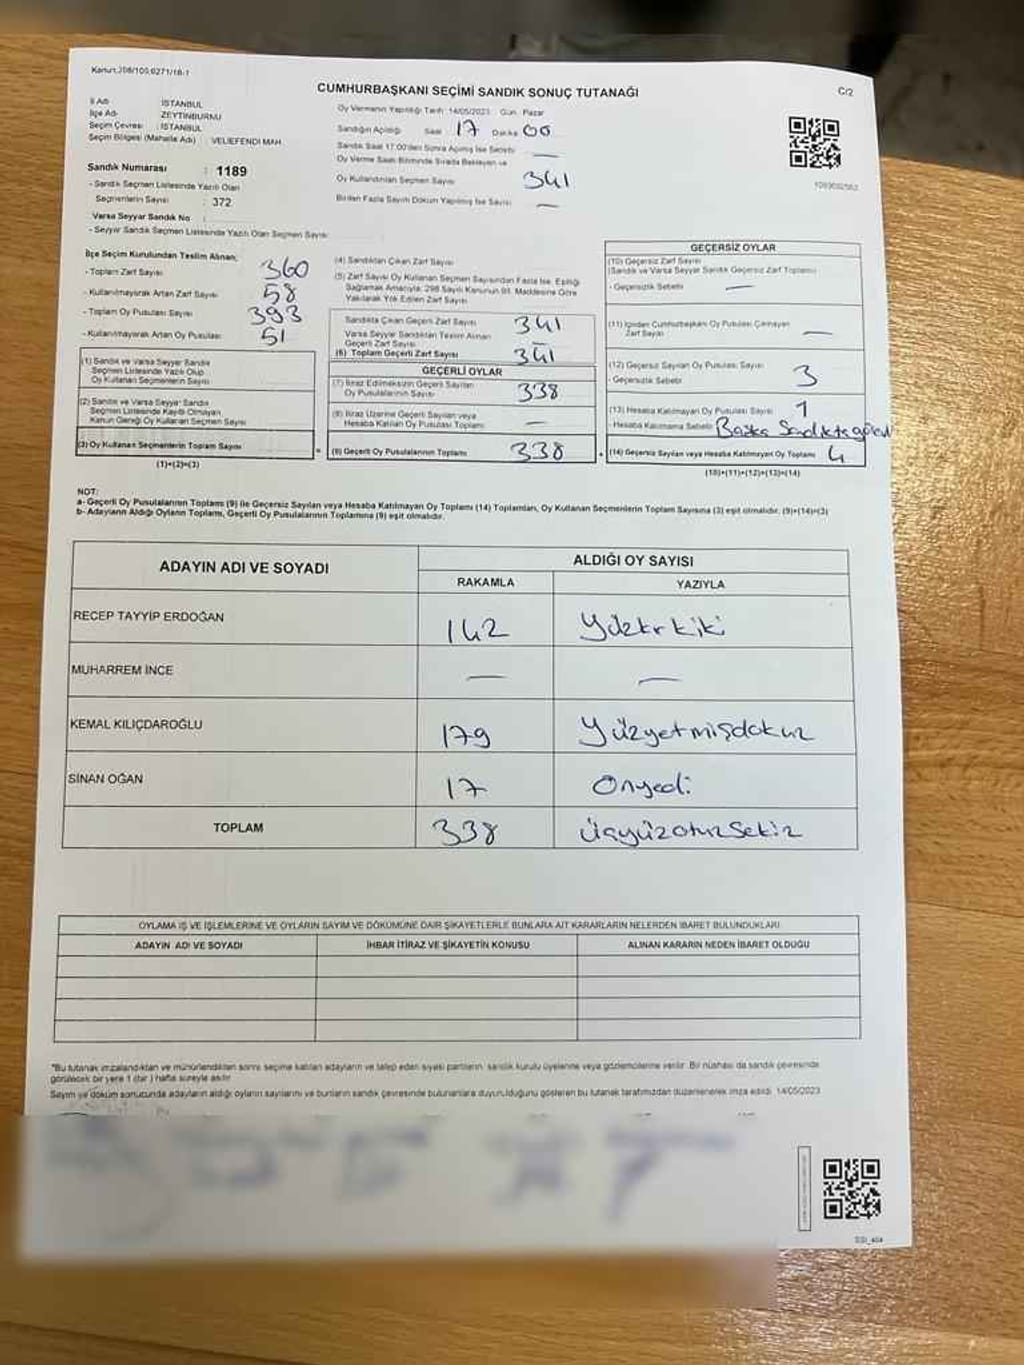 Kanun:298/100,6271/18-1
CUMHURBAŞKANI SEÇİMİ SANDIK SONUÇ TUTANAĞI
C/2
İl Adı : İSTANBUL
İlçe Adı : ZEYTİNBURNU
Seçim Çevresi : İSTANBUL
Seçim Bölgesi (Mahalle Adı) : VELİEFENDİ MAH.
Sandık Numarası : 1189
- Sandık Seçmen Listesinde Yazılı Olan
Seçmenlerin Sayısı : 372
Varsa Seyyar Sandık No :
- Seyyar Sandık Seçmen Listesinde Yazılı Olan Seçmen Sayısı:
Oy Vermenin Yapıldığı Tarih :14/05/2023 Gün: Pazar
Sandığın Açıldığı Saat 17 Dakika 00
Sandık Saat 17.00'den Sonra Açılmış İse Sebebi —
Oy Verme Saati Bitiminde Sırada Bekleyen ve
Oy Kullandırılan Seçmen Sayısı 341
Birden Fazla Sayım Döküm Yapılmış İse Sayısı —
İlçe Seçim Kurulundan Teslim Alınan;
- Toplam Zarf Sayısı 360
- Kullanılmayarak Artan Zarf Sayısı 58
- Toplam Oy Pusulası Sayısı 393
- Kullanılmayarak Artan Oy Pusulası 51
(1) Sandık ve Varsa Seyyar Sandık
Seçmen Listesinde Yazılı Olup
Oy Kullanan Seçmenlerin Sayısı
(2) Sandık ve Varsa Seyyar Sandık
Seçmen Listesinde Kaydı Olmayan,
Kanun Gereği Oy Kullanan Seçmen Sayısı
(3) Oy Kullanan Seçmenlerin Toplam Sayısı
(1)+(2)=(3)
(4) Sandıktan Çıkan Zarf Sayısı
(5) Zarf Sayısı Oy Kullanan Seçmen Sayısından Fazla İse, Eşitliği
Sağlamak Amacıyla; 298 Sayılı Kanunun 98. Maddesine Göre
Yakılarak Yok Edilen Zarf Sayısı
Sandıkta Çıkan Geçerli Zarf Sayısı 341
Varsa Seyyar Sandıktan Teslim Alınan
Geçerli Zarf Sayısı —
(6) Toplam Geçerli Zarf Sayısı 341
GEÇERLİ OYLAR
(7) İtiraz Edilmeksizin Geçerli Sayılan
Oy Pusulalarının Sayısı 338
(8) İtiraz Üzerine Geçerli Sayılan veya
Hesaba Katılan Oy Pusulası Toplamı —
(9) Geçerli Oy Pusulalarının Toplamı 338
GEÇERSİZ OYLAR
(10) Geçersiz Zarf Sayısı
(Sandık ve Varsa Seyyar Sandık Geçersiz Zarf Toplamı)
- Geçersizlik Sebebi —
(11) İçinden Cumhurbaşkanı Oy Pusulası Çıkmayan
Zarf Sayısı —
(12) Geçersiz Sayılan Oy Pusulası Sayısı 3
- Geçersizlik Sebebi
(13) Hesaba Katılmayan Oy Pusulası Sayısı 1
- Hesaba Katılmama Sebebi Başka Sandıkta
(14) Geçersiz Sayılan veya Hesaba Katılmayan Oy Toplamı 4
(10)+(11)+(12)+(13)=(14)
NOT:
a- Geçerli Oy Pusulalarının Toplamı (9) ile Geçersiz Sayılan veya Hesaba Katılmayan Oy Toplamı (14) Toplamları, Oy Kullanan Seçmenlerin Toplam Sayısına (3) eşit olmalıdır. (9)+(14)=(3)
b- Adayların Aldığı Oyların Toplamı, Geçerli Oy Pusulalarının Toplamına (9) eşit olmalıdır.
ADAYIN ADI VE SOYADI ALDIĞI OY SAYISI
RAKAMLA YAZIYLA
RECEP TAYYİP ERDOĞAN 142 Yüzkırkiki
MUHARREM İNCE — —
KEMAL KILIÇDAROĞLU 179 Yüzyetmişdokuz
SİNAN OĞAN 17 Onyedi
TOPLAM 338 Üçyüzotuzsekiz
OYLAMA İŞ VE İŞLEMLERİNE VE OYLARIN SAYIM VE DÖKÜMÜNE DAİR ŞİKAYETLERLE BUNLARA AİT KARARLARIN NELERDEN İBARET BULUNDUKLARI
ADAYIN ADI VE SOYADI İHBAR İTİRAZ VE ŞİKAYETİN KONUSU ALINAN KARARIN NEDEN İBARET OLDUĞU
*Bu tutanak imzalandıktan ve mühürlendikten sonra seçime katılan adayların ve talep eden siyasi partilerin, sandık kurulu üyelerine veya gözlemcilerine verilir. Bir nüshası da sandık çevresinde
görülecek bir yere 1 (bir) hafta süreyle asılır.
Sayım ve döküm sonucunda adayların aldığı oyların sayılarını ve bunların sandık çevresinde bulunanlara duyurulduğunu gösteren bu tutanak tarafımızdan düzenlenerek imza edildi. 14/05/2023